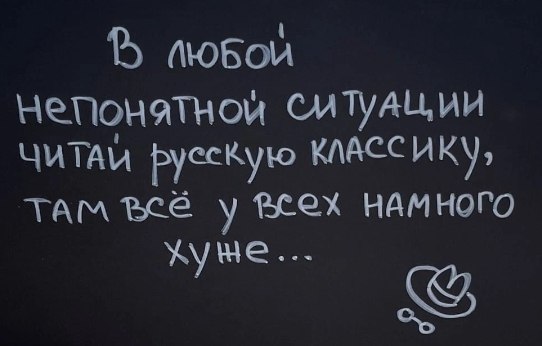 В любой
непонятной ситуации
читай русскую классику,
там всё у всех намного
хуже...